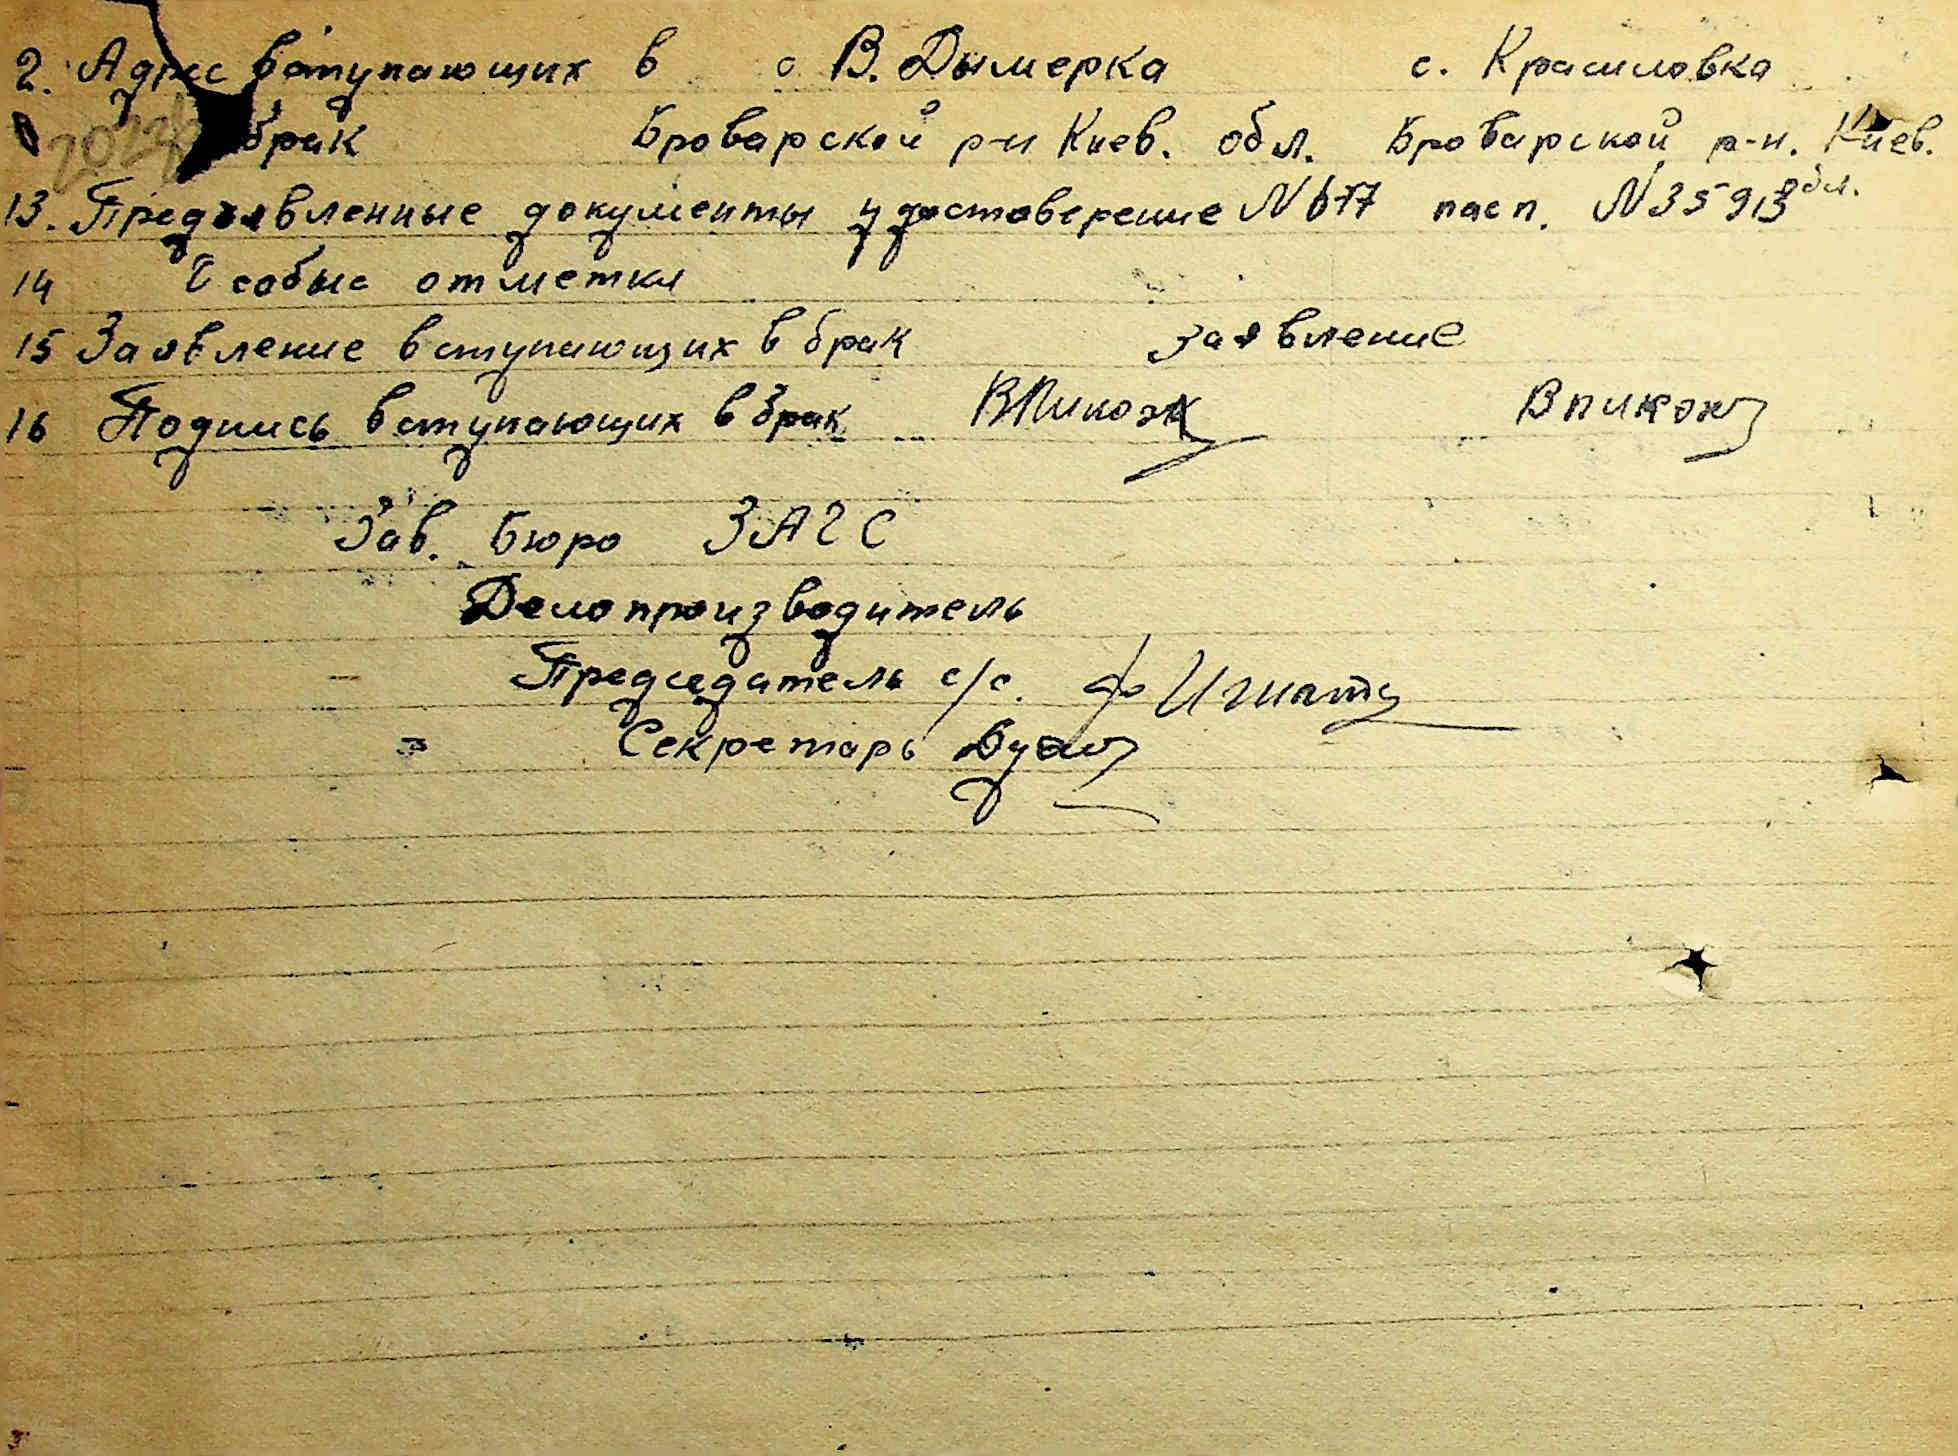 2. Адрес вступающих в с В. Дымерка с. Красиловка
брак Броварской р-н Киев. обл. Броварской р-н. Киев. обл.
13. Предъявленные документы удостоверение N 677 пасп. N 35913
14 Особые отметки
15 Заявление вступающих в брак заявление
16 Подпись вступающих в брак ВПикож Впикож
Зав. Бюро ЗАГС
Делопроизводитель
Председатель с/с.
Секретарь